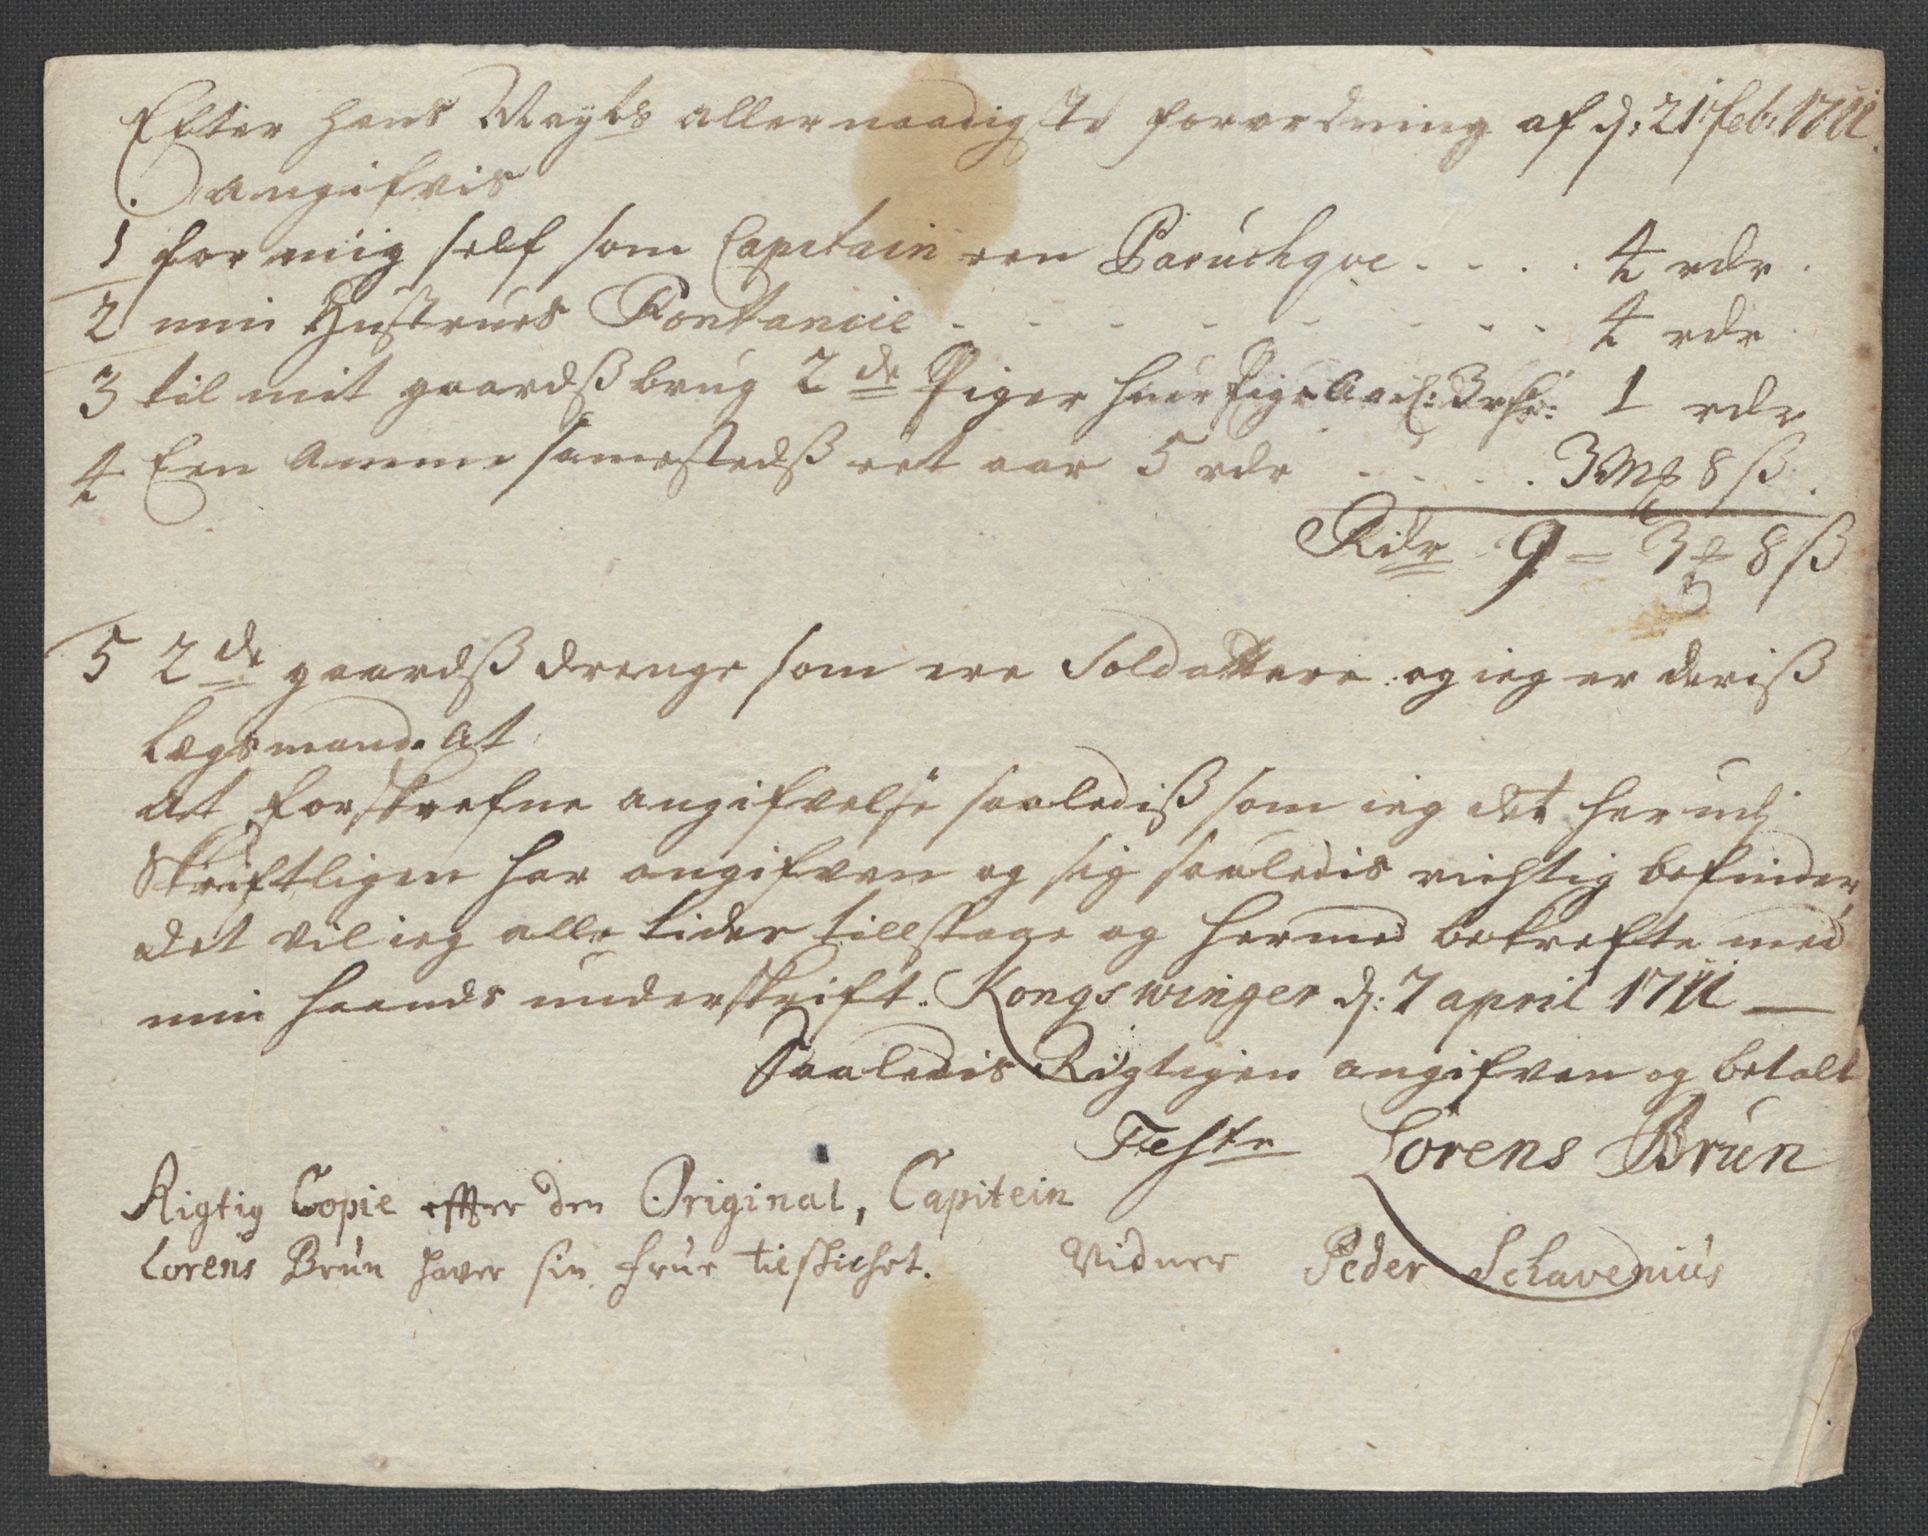 Efter hans Maÿts allernaadigste forordning af d: 21 feb: 1711.
angifvis
1 for mig self som Capitain een Paruchqve . . . . 4 rdr.
2 min Hustrues Fontancie . . . . . . . . 4 rdr
3 til mit gaardsß brug 2de Piger huer Pige Aarl: 3 rdr: 1 rdr
4 Een Amme sammestedß eet aar 5 rdr . . . . . 3 Mk 8 ß.
Rdr 9 = 3 8 ß
5 2de gaardß drenge som ere Soldattere og ieg er deriß
Lægsmand. At
At forskrefne angifvelse saalediß som ieg det herudj
Skriftligen har angifven og sig saaledis richtig befinder,
det vil ieg alle tider tillstaae og hermed bekrefte med
min haands underskrift. Kongswinger d: 7 april 1711 —
Saaledis Rigtigen angifven og betalt
Teste Lorens Brun
Rigtig Copie effter den Original, Capitein
Lorens Brun haver sin frue tilskichet. Vidner Peder Schavenius